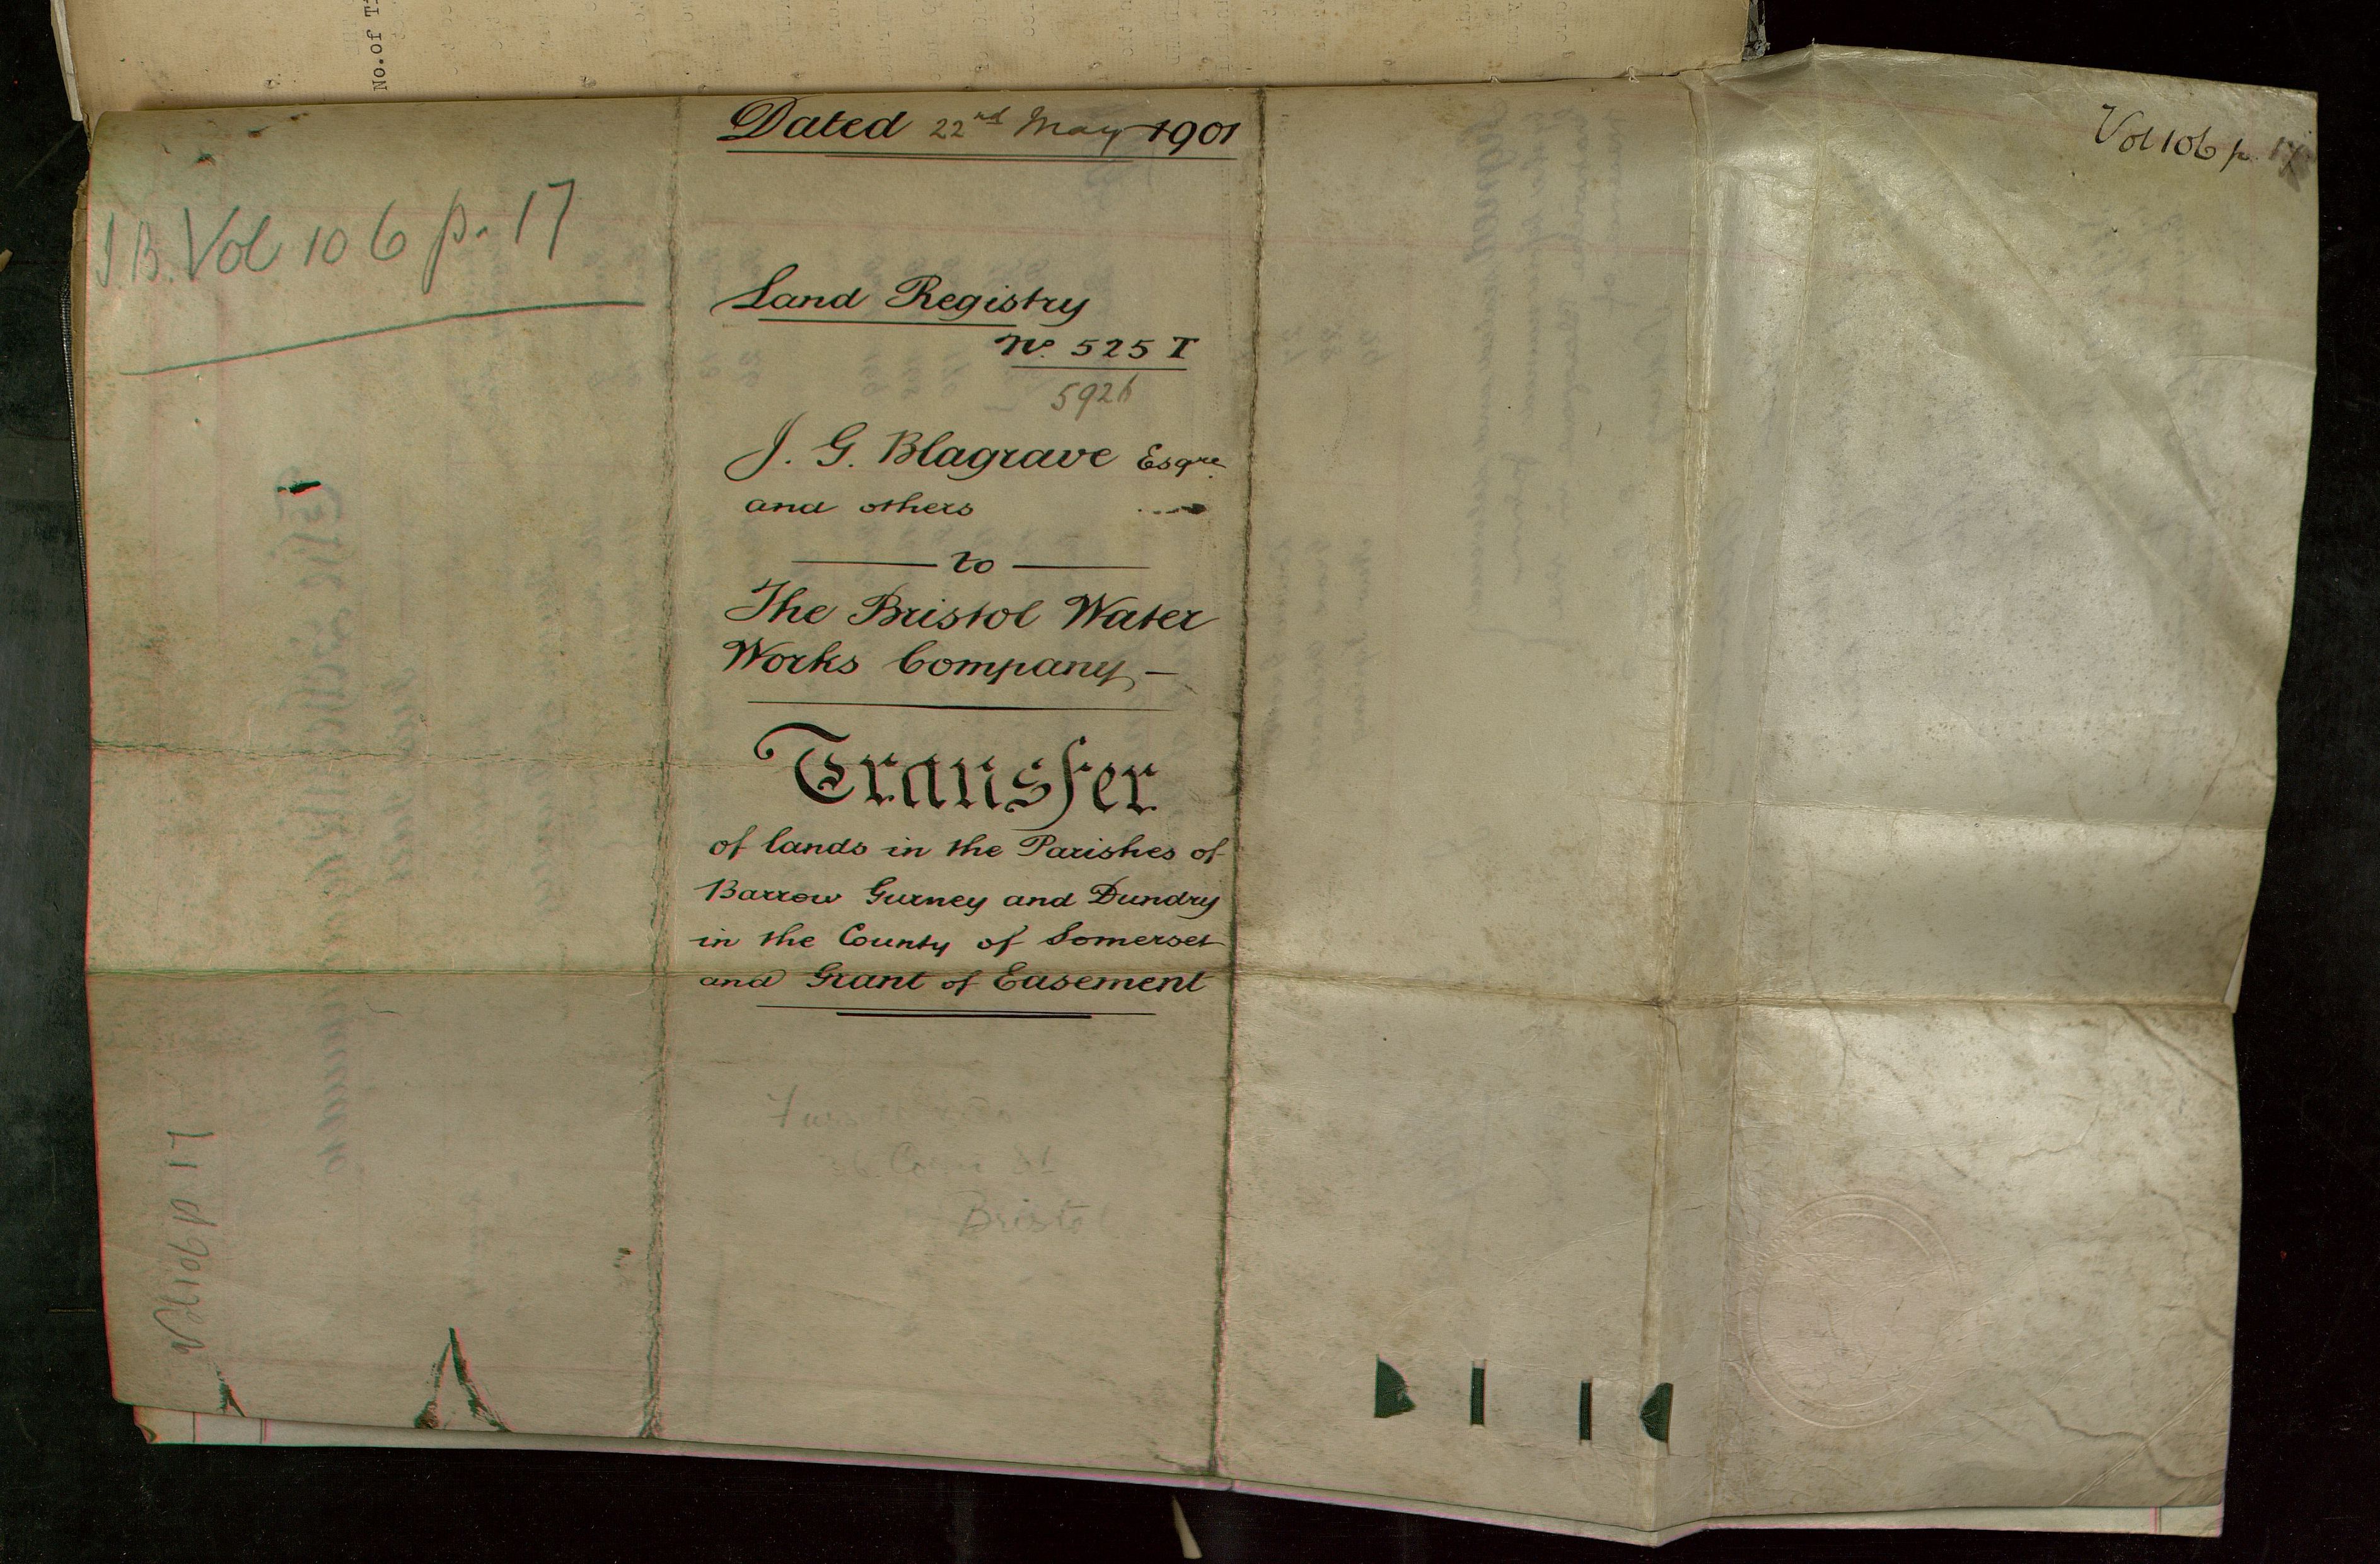 No. of
J.B. Vol 106 p. 17
Dated 22nd May 1901
Land Registry
No. 525 T
592b
J. G. Blagrave Esqre.
and others
to
The Bristol Water
Works Company
Transfer
of lands in the Parishes of
Barrow Gurney and Dundry
in the County of Somerset
and Grant of Easement
Bristol
Vol 106 p. 17
Vol 106 p. 17